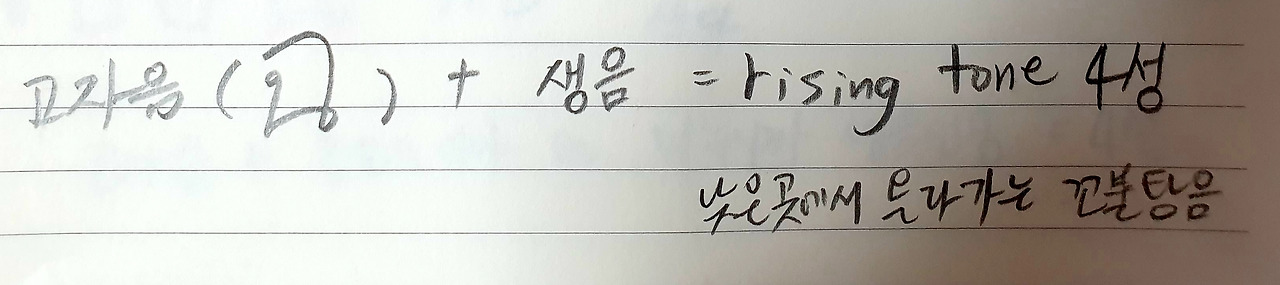 고자음 (ฉ) + 생음 = rising tone 4성
낮은곳에서 올라가는 꼬불탕음